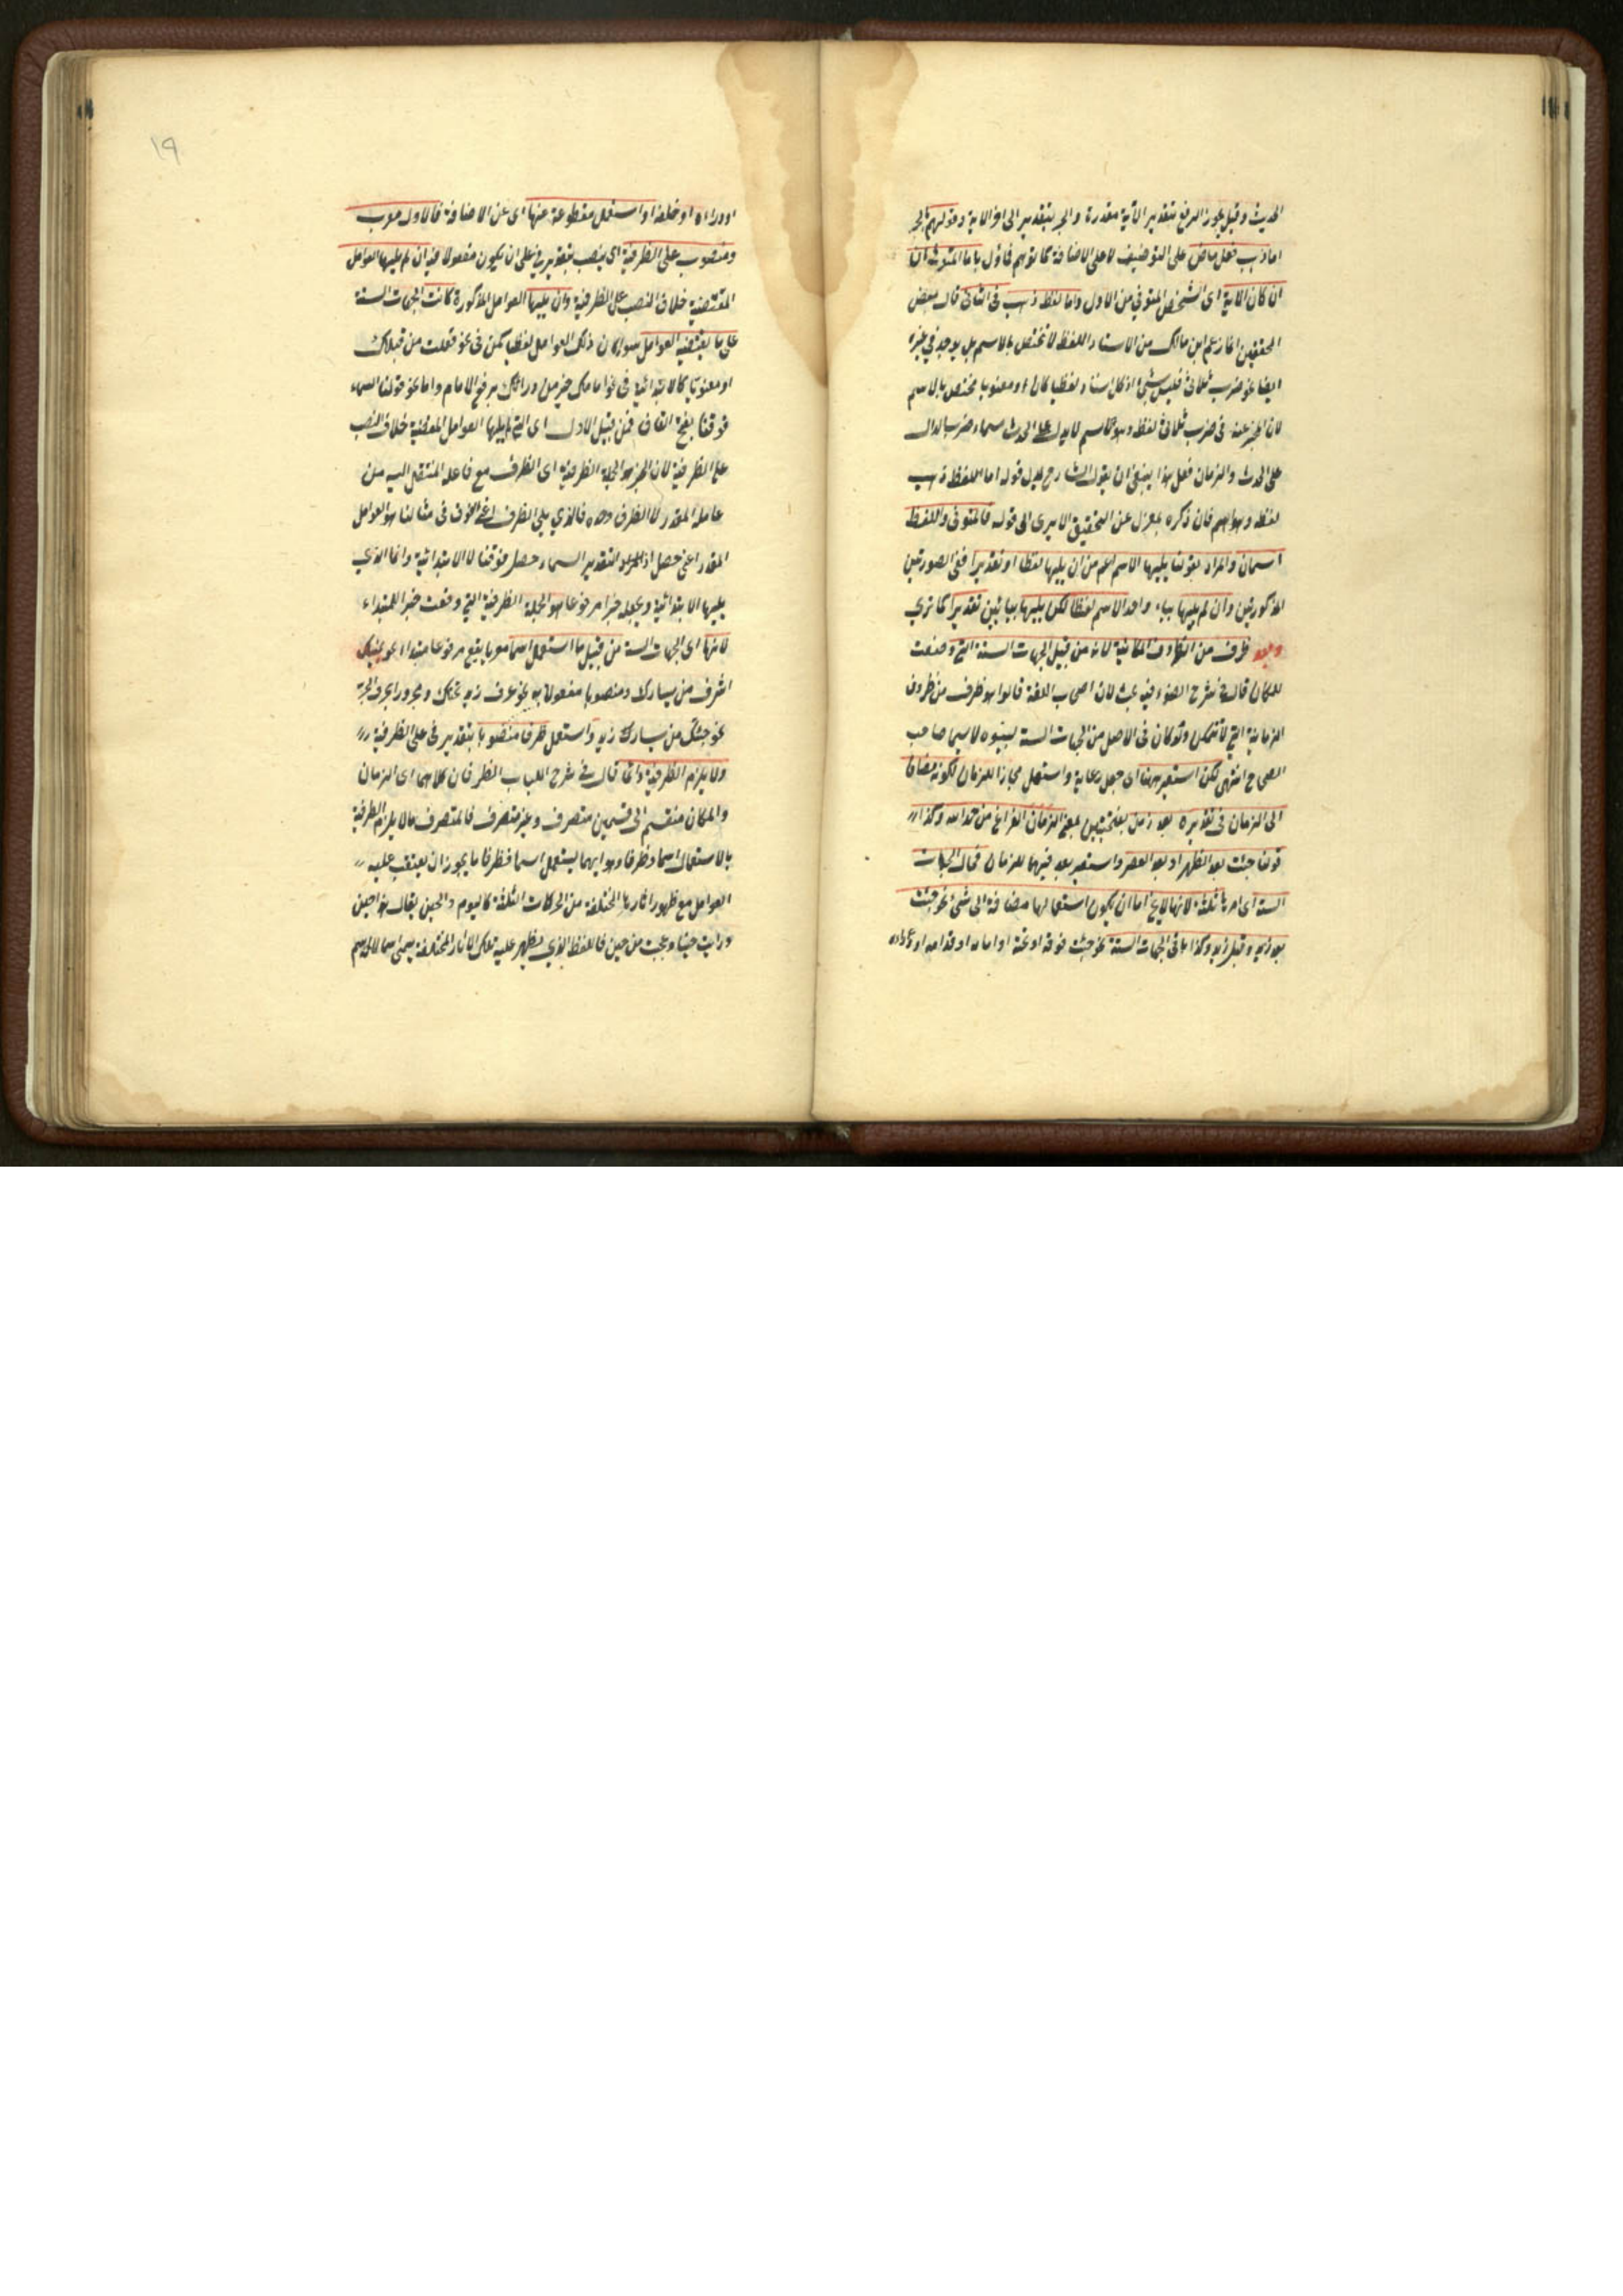 الحديث وقيل يجوز الرفع بتقدير الآية مقدرة والجر بتقدير الى آخر الآية وقولهم الجر
اما ذهب فعل ماض على التوصيف لا على الاضافة كما توهم فاول باما
ان كان الآية اى الشخص المتوفى من الاول واما لفظ ذهب فى الثانى قال بعض
المحققين انما زعم ابن مالك من الاسناد اللفظ لا تختص بالاسم بل يوجد فى غيره
ايضا نحو ضرب ثلاثى فليس بشئ اذ كل اسناد لفظيا كان او معنويا مختص بالاسم
لان المخبر عنه فى ضرب ثلاثى لفظ وهو كاسم لا يدل على الحدث مسماه ضرب الدال
على الحدث والزمان فعل هذا ينبغى ان يقول الشارح بدل قوله اما اللفظ ذهب
لفظ وهو اسم فان ذكره بمعزل عن التحقيق الا يرى الى قوله فالمتوفى واللفظ
اسمان والمراد بقولنا يليها الاسم اعم من ان يليها لفظا او تقديرا ففى الصورتين
المذكورتين وان لم يليها واحد الاسم لفظا لكن يليها تقديرا كما ترى
وبعد ظرف من الظروف المكانية لانه من قبيل الجهات الستة التى وضعت
للمكان قال فى شرح الضوء فيه بحث لان اصحاب اللغة قالوا هو ظرف من ظروف
الزمانية التى لا تتمكن ولو كان فى الاصل من الجهات الستة لبينوه لا سيما صاحب
الصحاح انتهى لكن استعير ههنا اى جعل واستعمل مجازا للزمان لكونه مضافا
الى الزمان فى تقديره بعد زمن بفتحتين بمعنى الزمان الفراغ من حمد الله وكذا
قولنا جئت بعد الظهر او بعد العصر واستعير بعد فيهما للزمان
الستة اى امر بالثلثة لانها لا يخ اما ان يكون استعمالها مضافة الى شئ نحو جئت
بعد زيد وقبل زيد وكذا باقى الجهات الستة نحو جئت فوقه او تحته او امامه او قدامه
١٩
او وراءه او خلفه او استعمل مقطوعة عنها اى عن الاضافة فالاول معرب
ومنصوب على الظرفية اى ينصب بتقدير فى على ان يكون مفعولا فيه ان لم يليها العوامل
المقتضية خلاف النصب على الظرفية وان يليها العوامل المذكورة كانت الجهات الستة
على ما يقتضيه العوامل سواء كان ذلك العوامل لفظيا كمن فى نحو فعلت من قبلك
او معنويا كالابتدائية فى نحو امامك خير من ورائك برفع الامام واما نحو قولنا السماء
فوقنا بفتح القاف فمن قبيل الاول اى التى لم يليها العوامل المقتضية خلاف النصب
على الظرفية لان الخبر هو الجملة الظرفية اى الظرف مع فاعله المنتقل اليه من
عامله المقدر لا الظرف وحده فالذي يلى الظرف اعنى الفوق فى مثالنا هو العوامل
المقدر اعنى حصل اذ المراد التقدير السماء حصل فوقنا لا الابتدائية وانما الذي
يليها الابتدائية ويجعله خبرا مرفوعا هو الجملة الظرفية التى وقعت خبرا للمبتداء
لانها اى الجهات الستة من قبيل ما استعمل اسما معربا يقع مرفوعا مبتداء نحو يمينك
اشرف من يسارك ومنصوبا مفعولا به نحو عرف زيد تحتك ومجرورا بحرف الجر
نحو جئتك من يسارك زيد واستعمل ظرفا منصوبا بتقدير فى على الظرفية
ولا يلزم الظرفية دائما قال فى شرح اللباب الظرفان كلاهما اى الزمان
والمكان منقسم الى قسمين متصرف وغير متصرف فالمتصرف ما لا يلزم الظرفية
بالاستعمال اسما وظرفا وهو ايهما يستعمل اسما فظرفا ما يجوز ان يعتقب عليه
العوامل مع ظهور اثارها المختلفة من الحركات الثلثة كاليوم والحين يقال هذا حين
ورايت حينا وعجبت من حين فاللفظ الذي يظهر عليه تلك الاثار المختلفة يسمى اسما